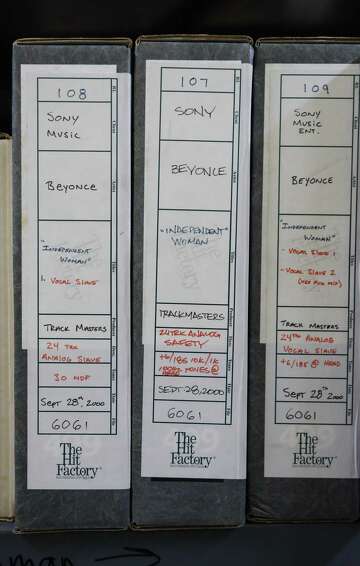 108
Sony
Music
Beyonce
"Independent
Woman"
1. Vocal Slave
Track Masters
24 TRK
Analog Slave
30 NDF
Sept 28th, 2000
6061
The
Hit
Factory
107
Sony
Beyonce
"Independent
Woman"
Trackmasters
24TRK Analog
Safety
+6/185 10K/1K
100Hz Tones @
Head
Sept. 28, 2000
6061
The
Hit
Factory
109
Sony
Music
Ent.
Beyonce
"Independent
Woman"
- Vocal Slave 1
- Vocal Slave 2
Track Masters
24Trk Analog
Vocal Slave
+6/185 @ Head
Sept 28th, 2000
6061
The
Hit
Factory
man →